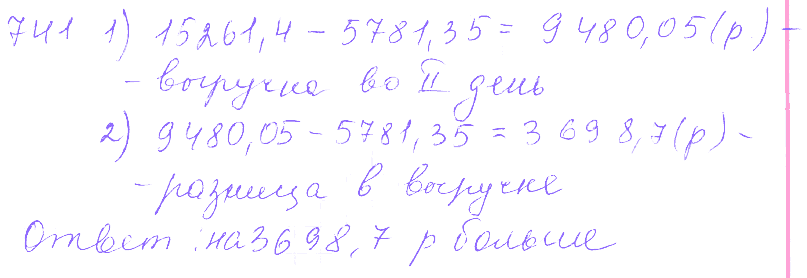 741 1) 15261,4 - 5781,35 = 9480,05 (р) -
- выручка во II день
2) 9480,05 - 5781,35 = 3698,7 (р) -
- разница в выручке
Ответ: на 3698,7 р больше